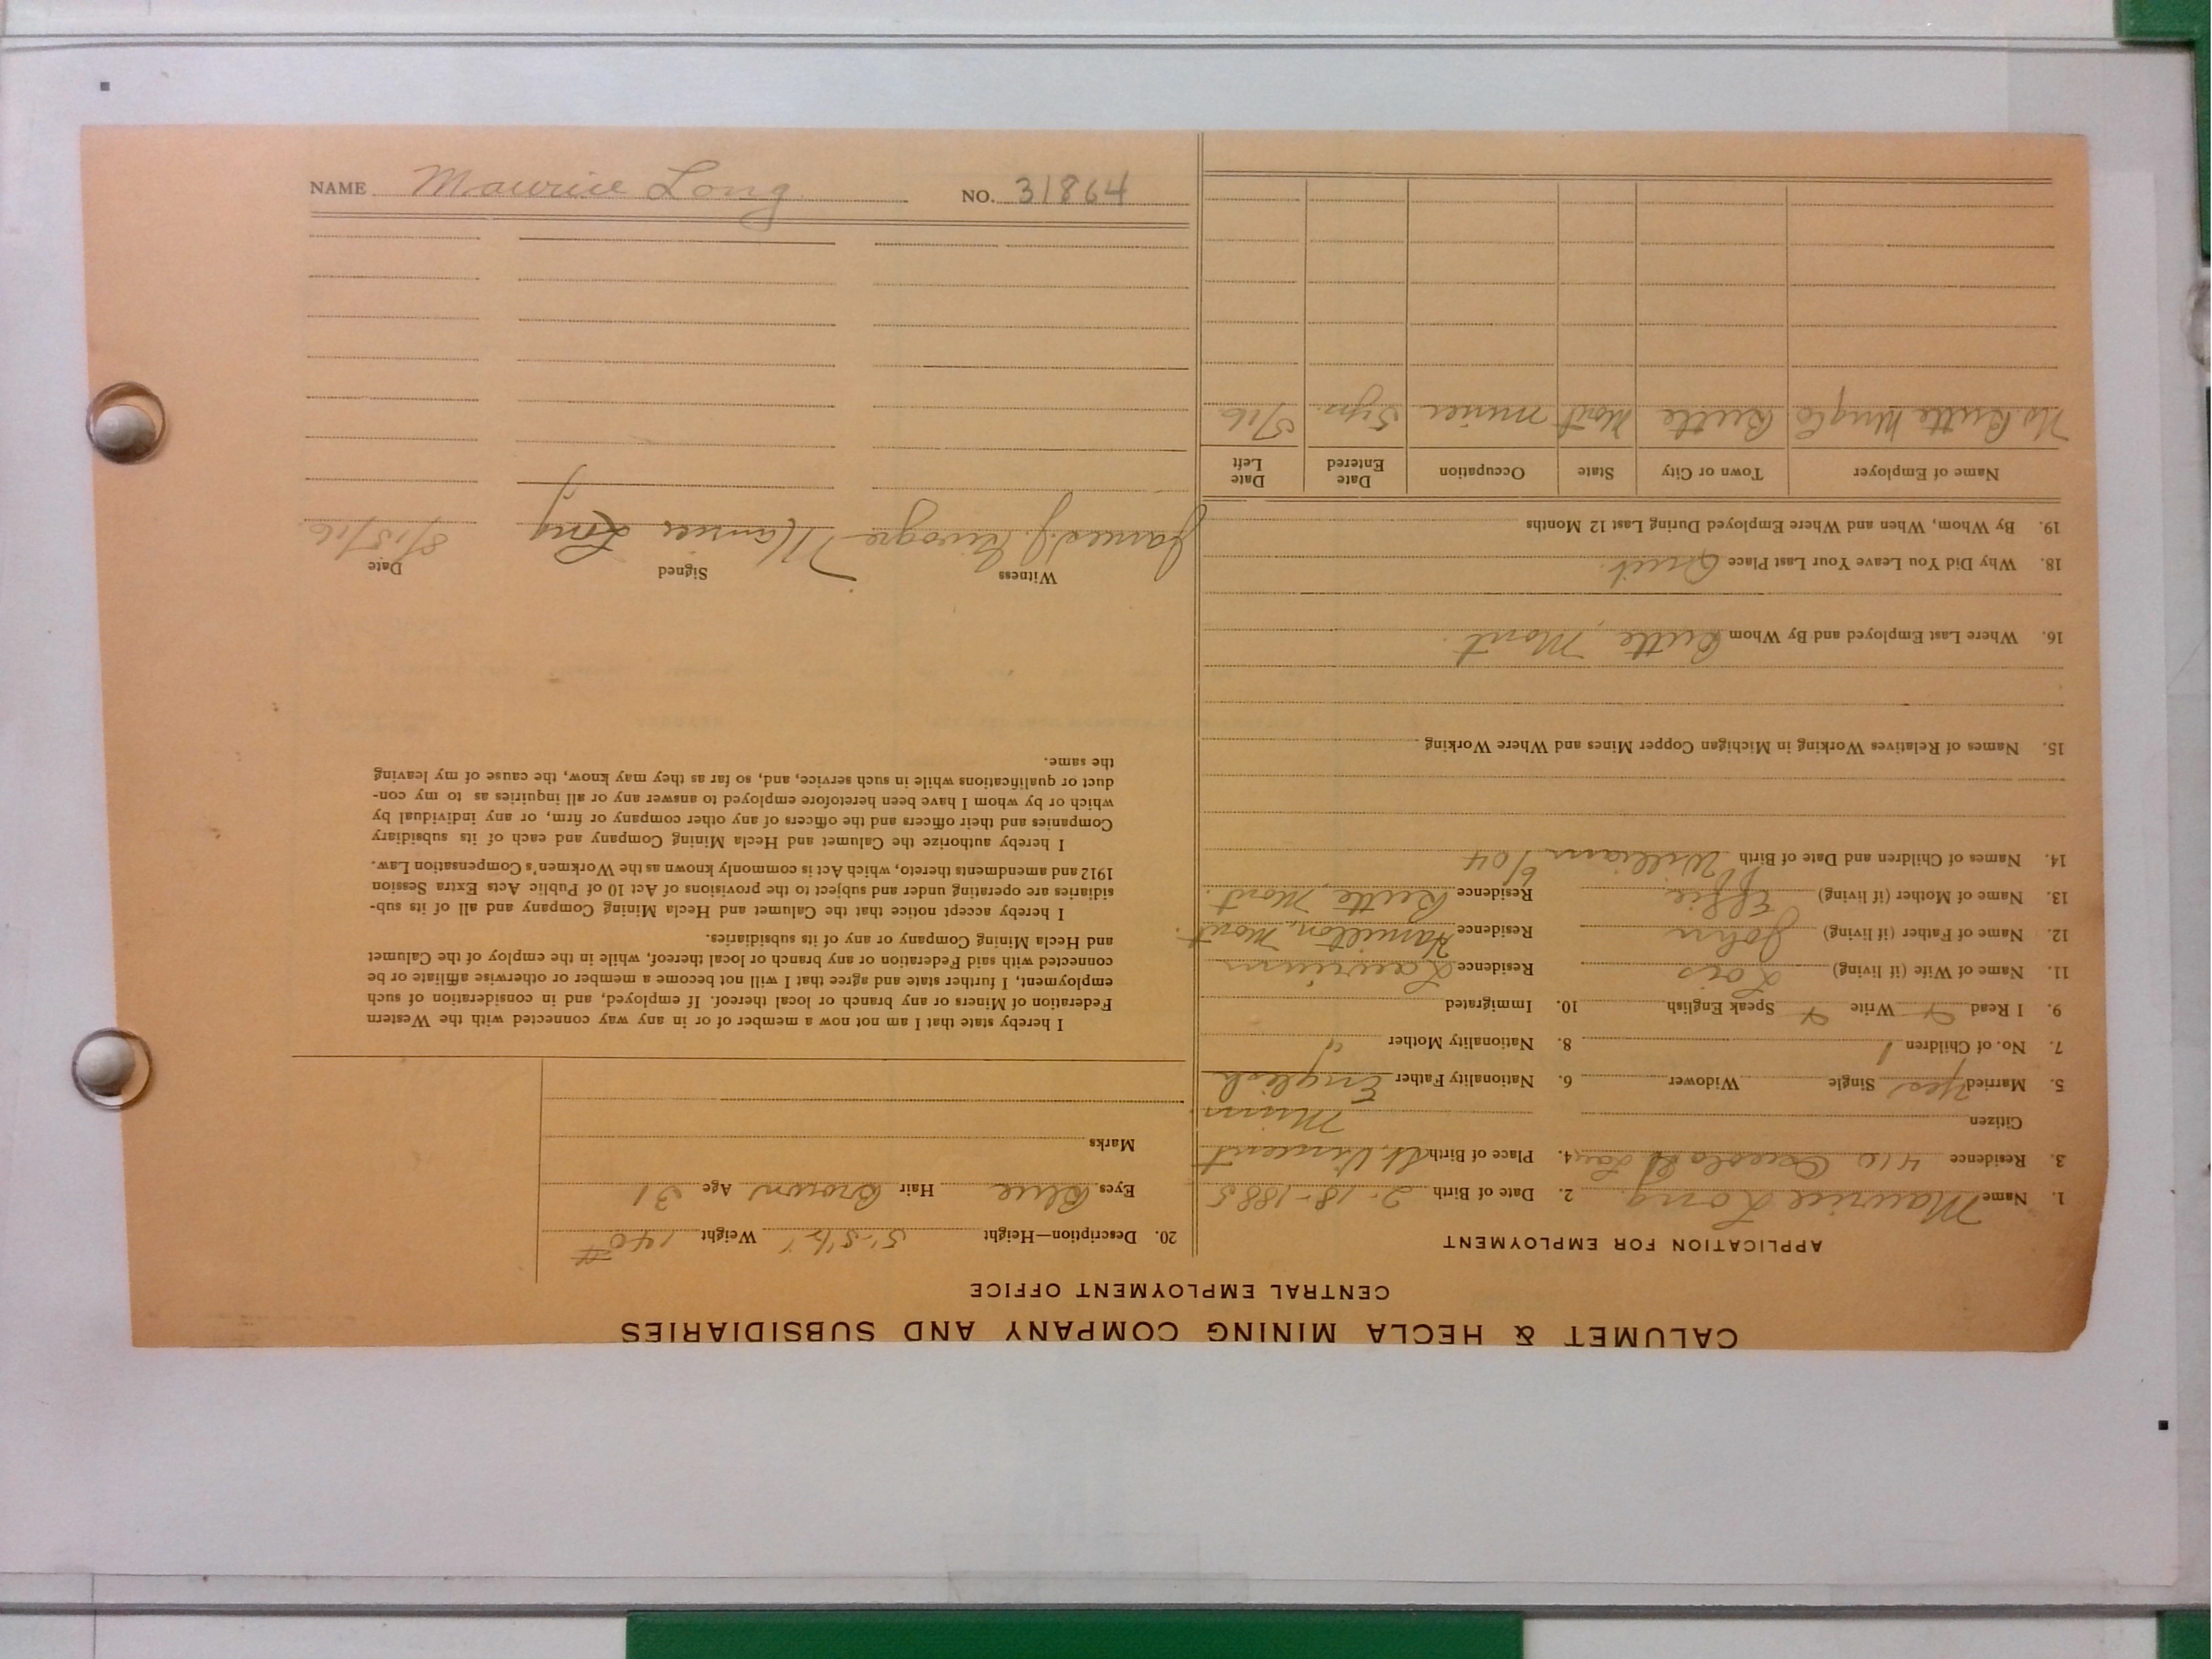 CALUMET & HECLA MINING COMPANY AND SUBSIDIARIES
CENTRAL EMPLOYMENT OFFICE
APPLICATION FOR EMPLOYMENT
1. Name Maurice Long 2. Date of Birth 2-18-1885
3. Residence 416 Osceola St 4. Place of Birth St. Vincent
Citizen Minn.
5. Married Yes Single Widower 6. Nationality Father English
7. No. of Children 1 8. Nationality Mother "
9. I Read Write Speak English 10. Immigrated
11. Name of Wife (if living) Lois Residence Laurium
12. Name of Father (if living) John Residence Hamilton, Mont.
13. Name of Mother (if living) Effie Residence Butte Mont.
14. Names of Children and Date of Birth William 6/04
15. Names of Relatives Working in Michigan Copper Mines and Where Working
16. Where Last Employed and By Whom Butte, Mont.
18. Why Did You Leave Your Last Place Quit.
19. By Whom, When and Where Employed During Last 12 Months
Name of Employer Town or City State Occupation Date Entered Date Left
No. Butte Mng Co Butte Mont miner 5 yrs. 5/16
20. Description—Height 5'-5½" Weight 140#
Eyes Blue Hair Brown Age 31
Marks
I hereby state that I am not now a member of or in any way connected with the Western
Federation of Miners or any branch or local thereof. If employed, and in consideration of such
employment, I further state and agree that I will not become a member or otherwise affiliate or be
connected with said Federation or any branch or local thereof, while in the employ of the Calumet
and Hecla Mining Company or any of its subsidiaries.
I hereby accept notice that the Calumet and Hecla Mining Company and all of its sub-
sidiaries are operating under and subject to the provisions of Act 10 of Public Acts Extra Session
1912 and amendments thereto, which Act is commonly known as the Workmen's Compensation Law.
I hereby authorize the Calumet and Hecla Mining Company and each of its subsidiary
Companies and their officers and the officers of any other company or firm, or any individual by
which or by whom I have been heretofore employed to answer any or all inquiries as to my con-
duct or qualifications while in such service, and, so far as they may know, the cause of my leaving
the same.
Witness Signed Date
James J. Maurice Long 8/15/16
NAME Maurice Long NO. 31864